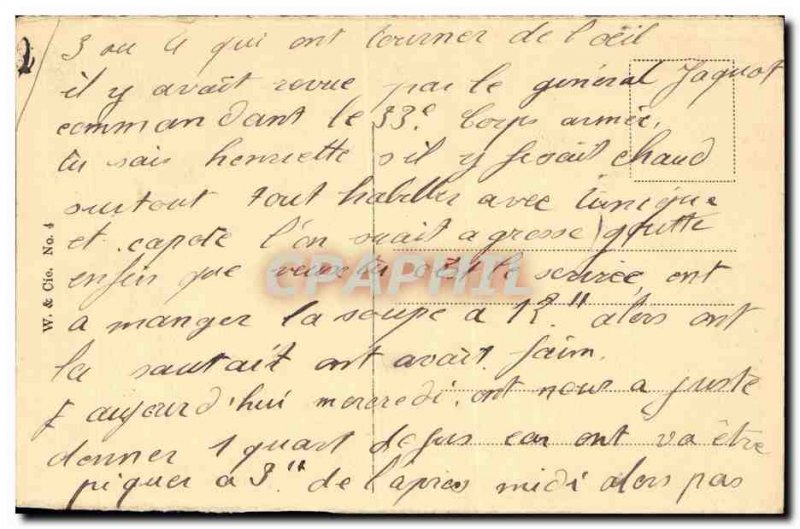 3 ou 4 qui ont tourner de l'oeil
il y avait revue par le général Jaquot
commandant le 33e Corps armée,
tu sais henriette s'il y fesait chaud
surtout tout habeller avec tunique
et capote l'on suait a grosse goutte
enfin que veux tu c'est le servire, ont
a manger la soupe a 12" alors ont
la sautait ont avait faim.
aujourd'hui mercredi, ont nous a juste
donner 1 quart de jus car ont va être
piquer a 3" de l'après midi alors pas
W. & Cie. No. 4
CPAPHIL